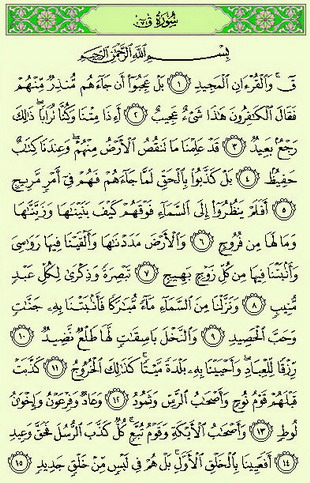 سُورَةُ ق
بِسْمِ اللَّهِ الرَّحْمَٰنِ الرَّحِيمِ
قٓ ۚ وَالْقُرْءَانِ الْمَجِيدِ ١ بَلْ عَجِبُوا أَن جَاءَهُم مُّنذِرٌ مِّنْهُمْ
فَقَالَ الْكَافِرُونَ هَٰذَا شَيْءٌ عَجِيبٌ ٢ أَءِذَا مِتْنَا وَكُنَّا تُرَابًا ۖ ذَٰلِكَ
رَجْعٌ بَعِيدٌ ٣ قَدْ عَلِمْنَا مَا تَنقُصُ الْأَرْضُ مِنْهُمْ ۖ وَعِندَنَا كِتَابٌ
حَفِيظٌ ٤ بَلْ كَذَّبُوا بِالْحَقِّ لَمَّا جَاءَهُمْ فَهُمْ فِي أَمْرٍ مَّرِيجٍ
٥ أَفَلَمْ يَنظُرُوا إِلَى السَّمَاءِ فَوْقَهُمْ كَيْفَ بَنَيْنَاهَا وَزَيَّنَّاهَا
وَمَا لَهَا مِن فُرُوجٍ ٦ وَالْأَرْضَ مَدَدْنَاهَا وَأَلْقَيْنَا فِيهَا رَوَاسِيَ
وَأَنبَتْنَا فِيهَا مِن كُلِّ زَوْجٍ بَهِيجٍ ٧ تَبْصِرَةً وَذِكْرَىٰ لِكُلِّ عَبْدٍ
مُّنِيبٍ ٨ وَنَزَّلْنَا مِنَ السَّمَاءِ مَاءً مُّبَارَكًا فَأَنبَتْنَا بِهِ جَنَّاتٍ
وَحَبَّ الْحَصِيدِ ٩ وَالنَّخْلَ بَاسِقَاتٍ لَّهَا طَلْعٌ نَّضِيدٌ ١٠
رِّزْقًا لِّلْعِبَادِ ۖ وَأَحْيَيْنَا بِهِ بَلْدَةً مَّيْتًا ۚ كَذَٰلِكَ الْخُرُوجُ ١١ كَذَّبَتْ
قَبْلَهُمْ قَوْمُ نُوحٍ وَأَصْحَابُ الرَّسِّ وَثَمُودُ ١٢ وَعَادٌ وَفِرْعَوْنُ وَإِخْوَانُ
لُوطٍ ١٣ وَأَصْحَابُ الْأَيْكَةِ وَقَوْمُ تُبَّعٍ ۚ كُلٌّ كَذَّبَ الرُّسُلَ فَحَقَّ وَعِيدِ
١٤ أَفَعَيِينَا بِالْخَلْقِ الْأَوَّلِ ۚ بَلْ هُمْ فِي لَبْسٍ مِّنْ خَلْقٍ جَدِيدٍ ١٥